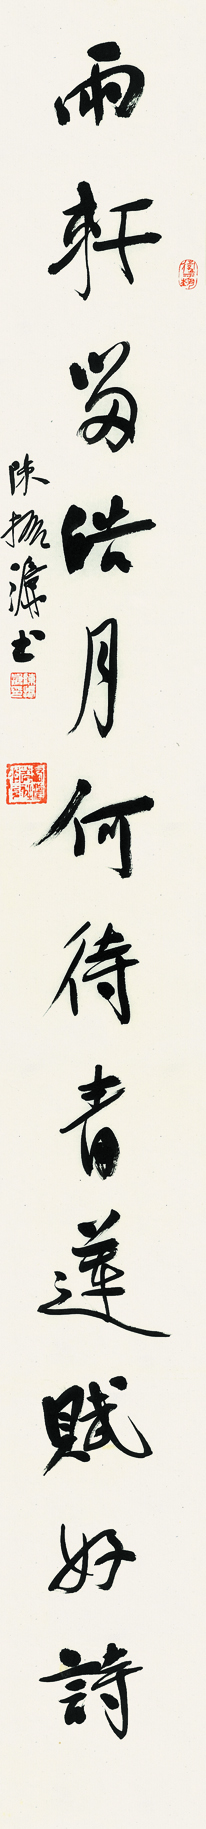 雨軒留皓月何待青蓮賦好詩
陳振濂書